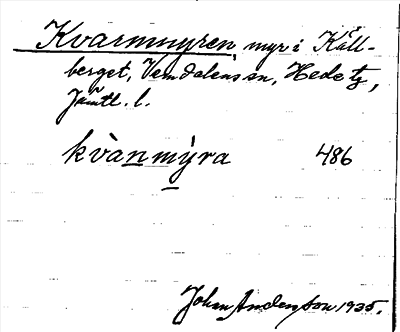 Kvarnmyren, myr i Käll-
berget, Vemdalens sn, Hede tg,
Jämtl. l.
kvànmy̌ra 486
Johan Andersson 1935.